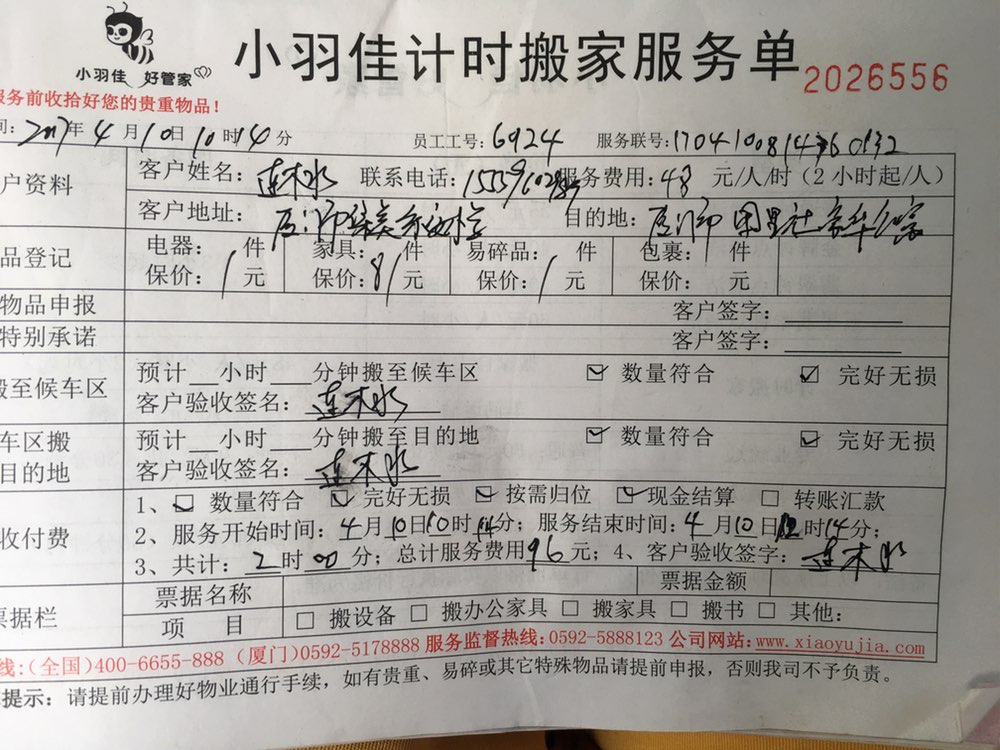 小羽佳 好管家
小羽佳计时搬家服务单 2026556
服务前收拾好您的贵重物品！
间：2017年4月10日10时14分 员工工号：6924 服务联号：
户资料 客户姓名：连木水 联系电话： 服务费用：48元/人/时（2小时起/人）
客户地址： 目的地：
品登记 电器： 件 家具： 件 易碎品： 件 包裹： 件
保价： 元 保价： 元 保价： 元 保价： 元
物品申报 客户签字：
特别承诺 客户签字：
搬至候车区 预计__小时__分钟搬至候车区 ☑ 数量符合 ☑ 完好无损
客户验收签名：连木水
车区搬 预计__小时__分钟搬至目的地 ☑ 数量符合 ☑ 完好无损
目的地 客户验收签名：连木水
1、☑ 数量符合 ☑ 完好无损 ☑ 按需归位 ☑ 现金结算 □ 转账汇款
收付费 2、服务开始时间：4月10日10时14分；服务结束时间：4月10日12时14分；
3、共计：2时00分；总计服务费用96元；4、客户验收签字：连木水
票据名称 票据金额
票据栏 项 目 □ 搬设备 □ 搬办公家具 □ 搬家具 □ 搬书 □ 其他：
线：(全国)400-6655-888 (厦门)0592-5178888 服务监督热线：0592-5888123 公司网站：www.xiaoyujia.com
提示：请提前办理好物业通行手续，如有贵重、易碎或其它特殊物品请提前申报，否则我司不予负责。